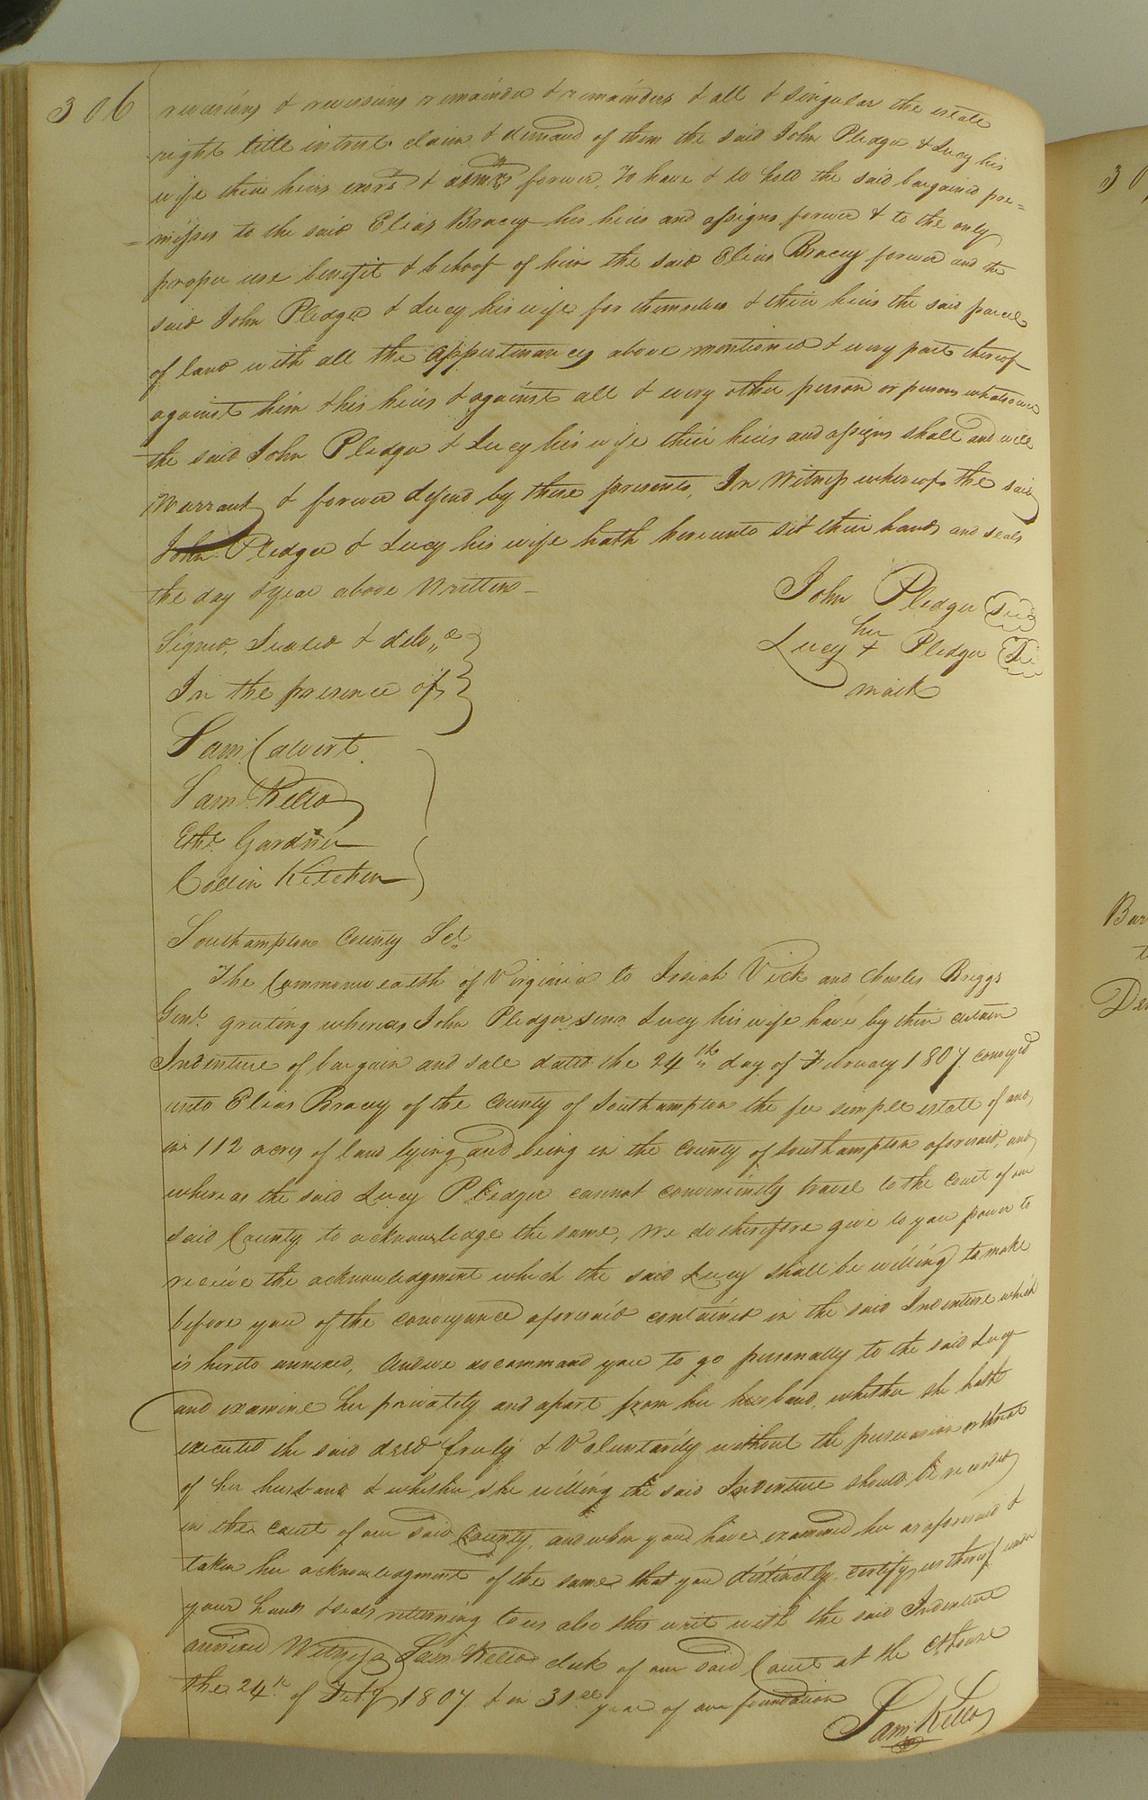 306
revercions & revercions remainder & remainders & all & singular the estate
right title intrest claim & demand of them the said John Pledger & Lucy his
wife their heirs exors & admrs forever, To have & to hold the said bargained pre=
=misses to the said Elias Bracey his heirs and assigns forever & to the only
proper use benefit & behoof of him the said Elias Bracey forever and the
said John Pledger & Lucy his wife for themselves & their heirs the said parcel
of land with all the Appertinancies above mentioned & every part thereof
against him & his heirs & against all & every other person or persons whatsoever
the said John Pledger & Lucy his wife their heirs and assigns shall and will
Warrant & forever defend by these presents, In Witness whereof the said
John Pledger & Lucy his wife hath hereunto set their hands and seals
the day & year above Written —
John Pledger Seal
her
Lucy + Pledger Seal
mark
Signed, Sealed & delv,,d
In the presence of
Saml. Calvert.
Saml. Kello
Ethd. Gardner
Collin Kitchen
Southampton County Sct.
The Commonwealth of Virginia to Josiah Vick and Charles Briggs
Gent. greeting whereas John Pledger senr. Lucy his wife have by their certain
Indenture of bargain and sale dated the 24th day of February 1807 conveyed
unto Elias Bracey of the County of Southampton the fee simple estate of and
in 112 acres of land lying and being in the County of Southampton aforesaid, and
whereas the said Lucy Pledger cannot conveniently travel to the Court of our
said County to acknowledge the same, We do therefore give to you power to
receive the acknowledgment which the said Lucy shall be willing to make
before you of the conveyance aforesaid contained in the said Indenture which
is hereto annexed, And we do command you to go personally to the said Lucy
and examine her privately and apart from her husband, whether she hath
executed the said deed freely & Voluntarily without the persuasion or threat
of her husband & whether she willing the said Indenture should be recorded
in the court of our said County, and when you have examined her as aforesaid &
taken her acknowledgment of the same that you distinctly certify us thereof under
your hands & seals returning to us also this writ with the said Indenture
annexed Witness Sam Kello clerk of our said Court at the Cthouse
the 24th of Feby 1807 & in 31st year of our foundation
Saml. Kello
30
Bar
t
Der